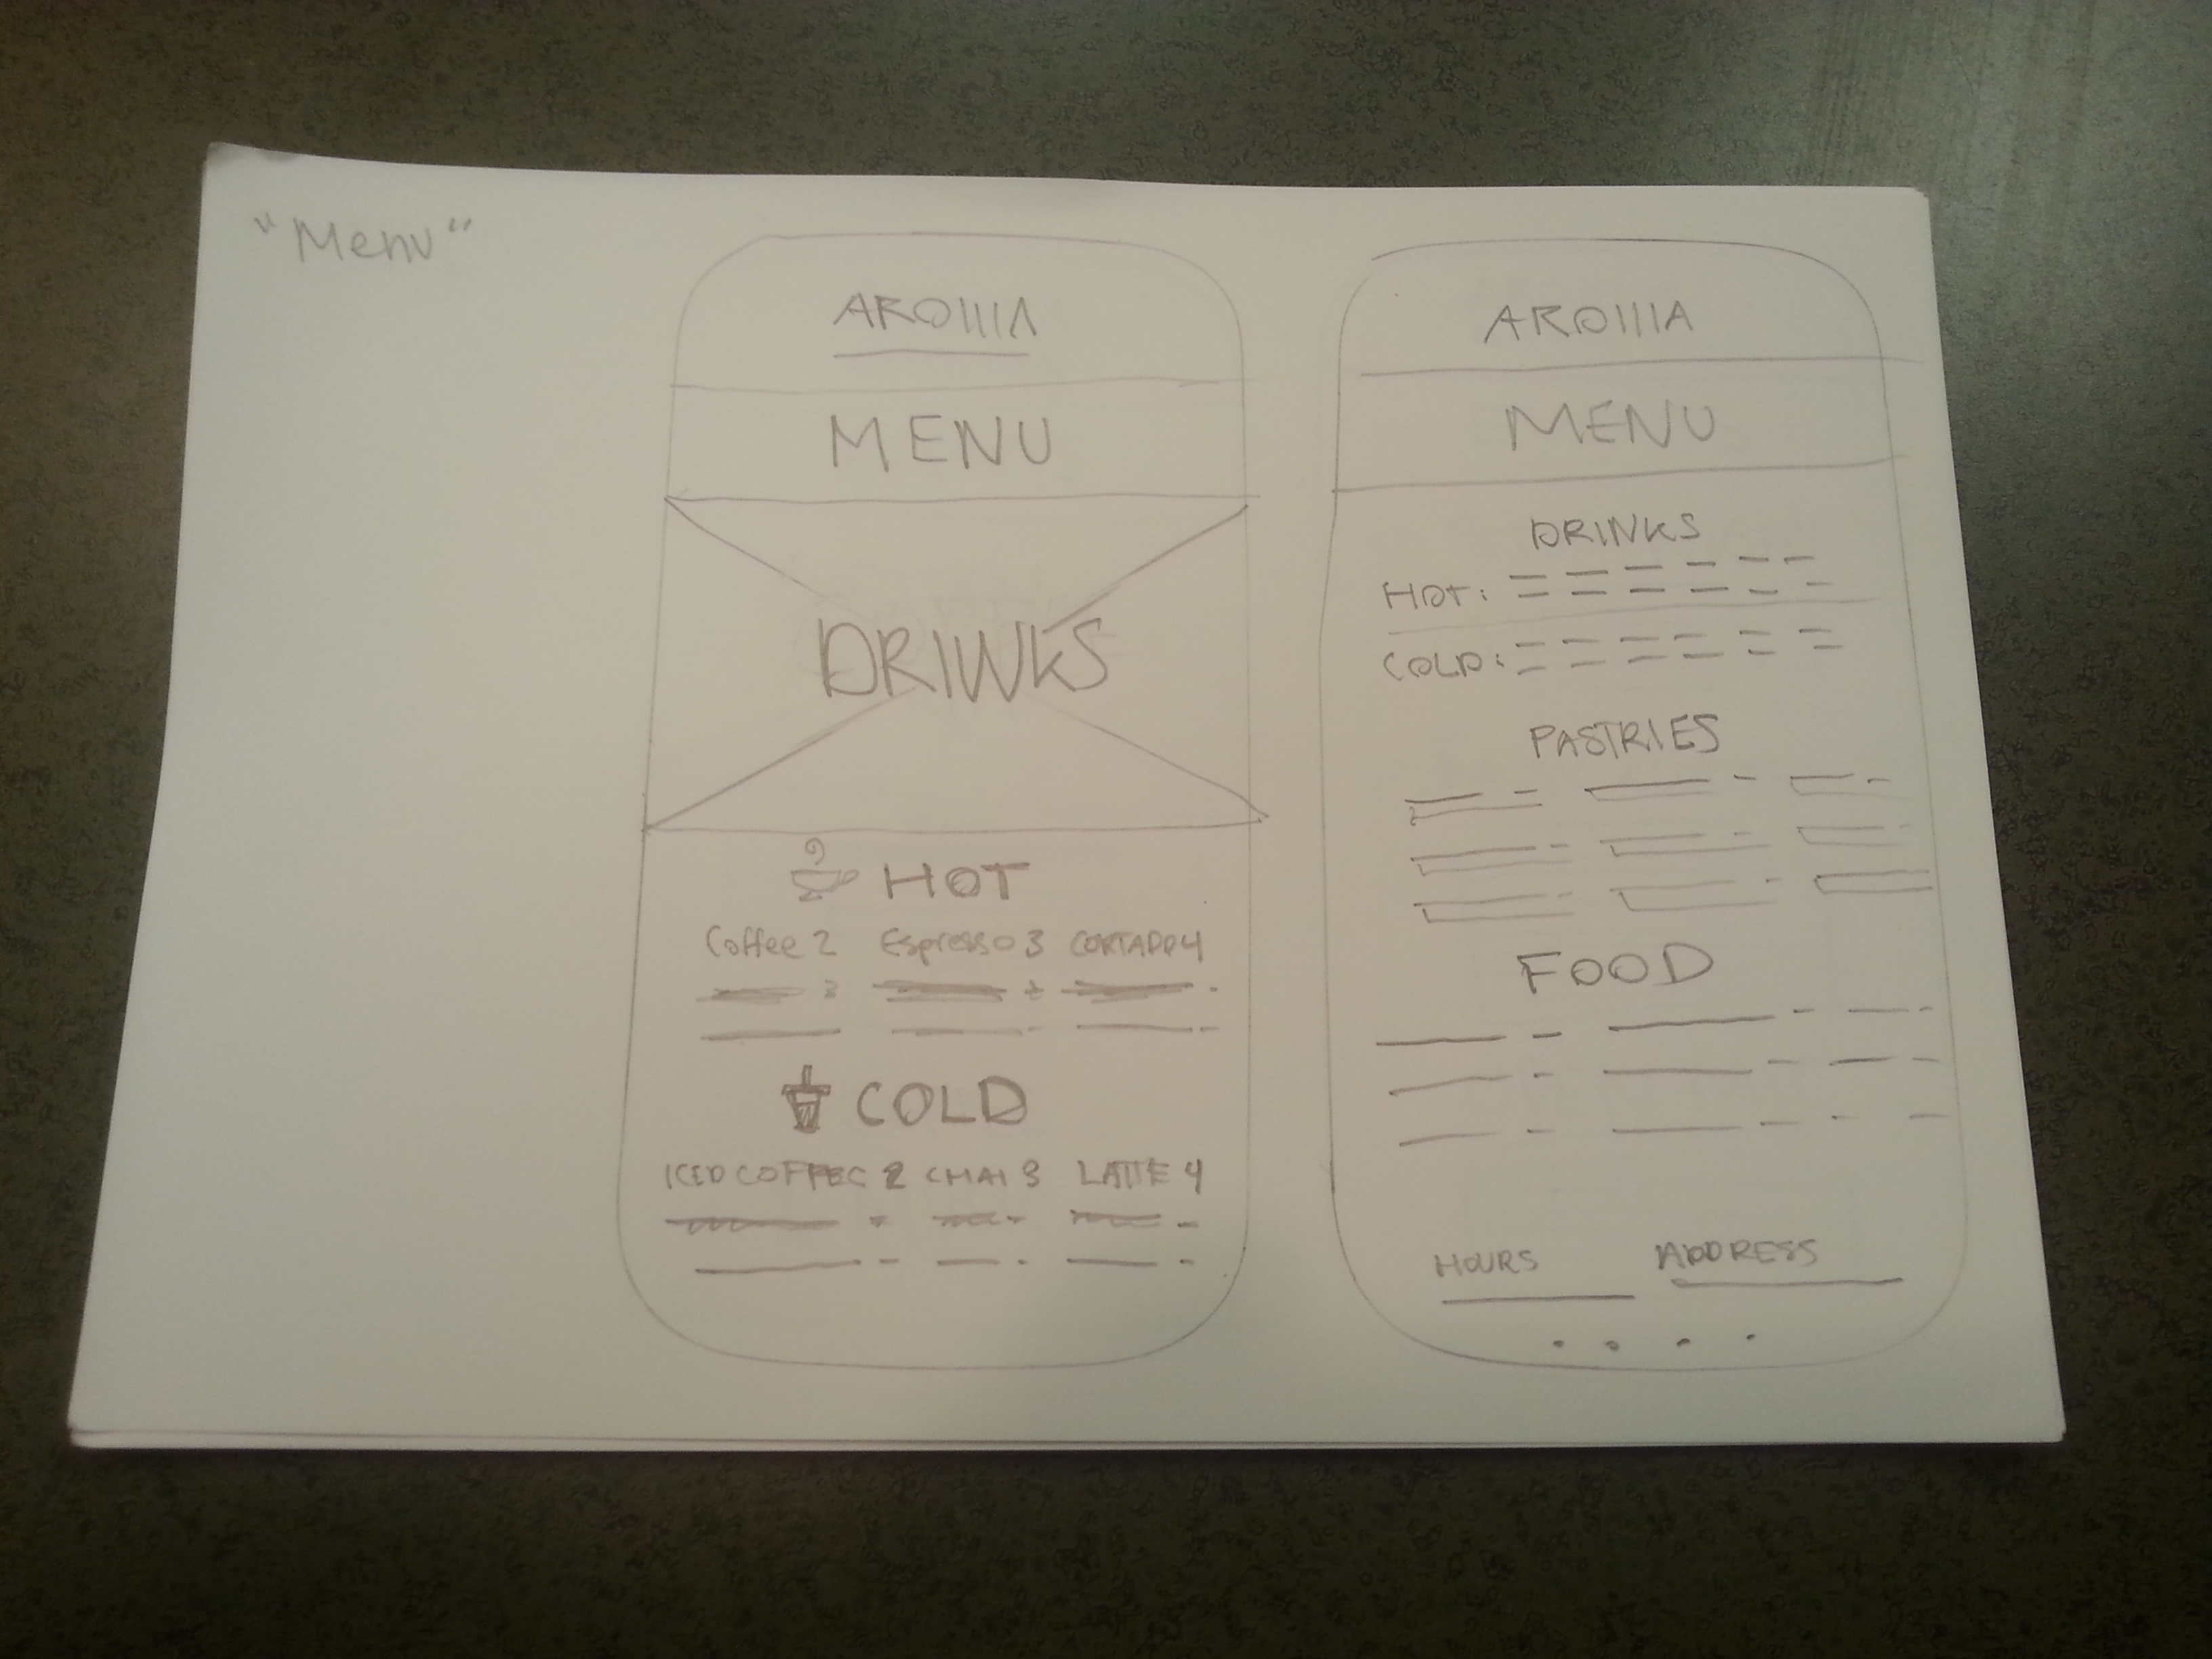 "Menu"
AROMA
MENU
DRINKS
HOT
Coffee 2 Espresso 3 CORTADO 4
COLD
ICED COFFEE 2 CHAI 3 LATTE 4
AROMA
MENU
DRINKS
HOT:
COLD:
PASTRIES
FOOD
HOURS ADDRESS